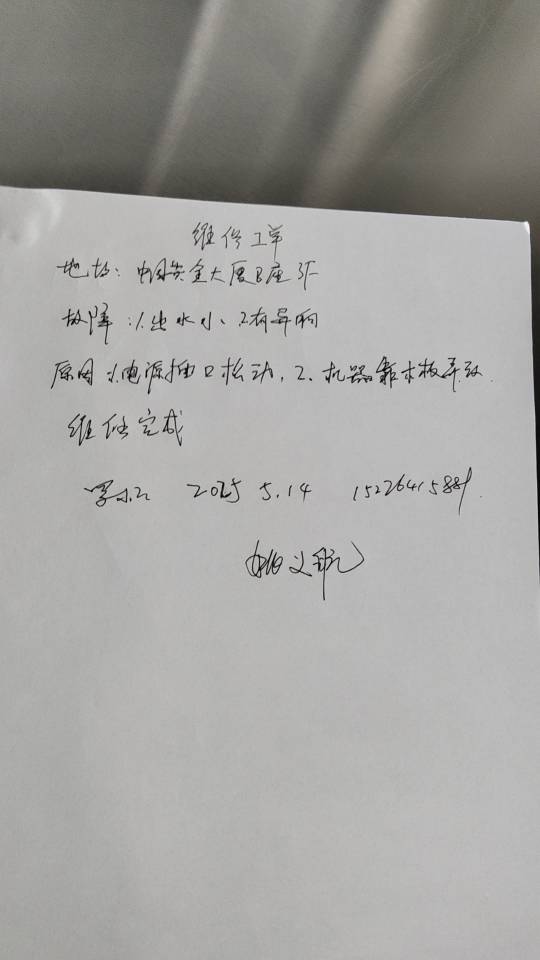 维修工单
地址:中国黄金大厦B座3F
故障:1.出水小、2.有异响
原因:1.电源插口松动,2、机器靠木板导致.
维修完成
2025 5.14